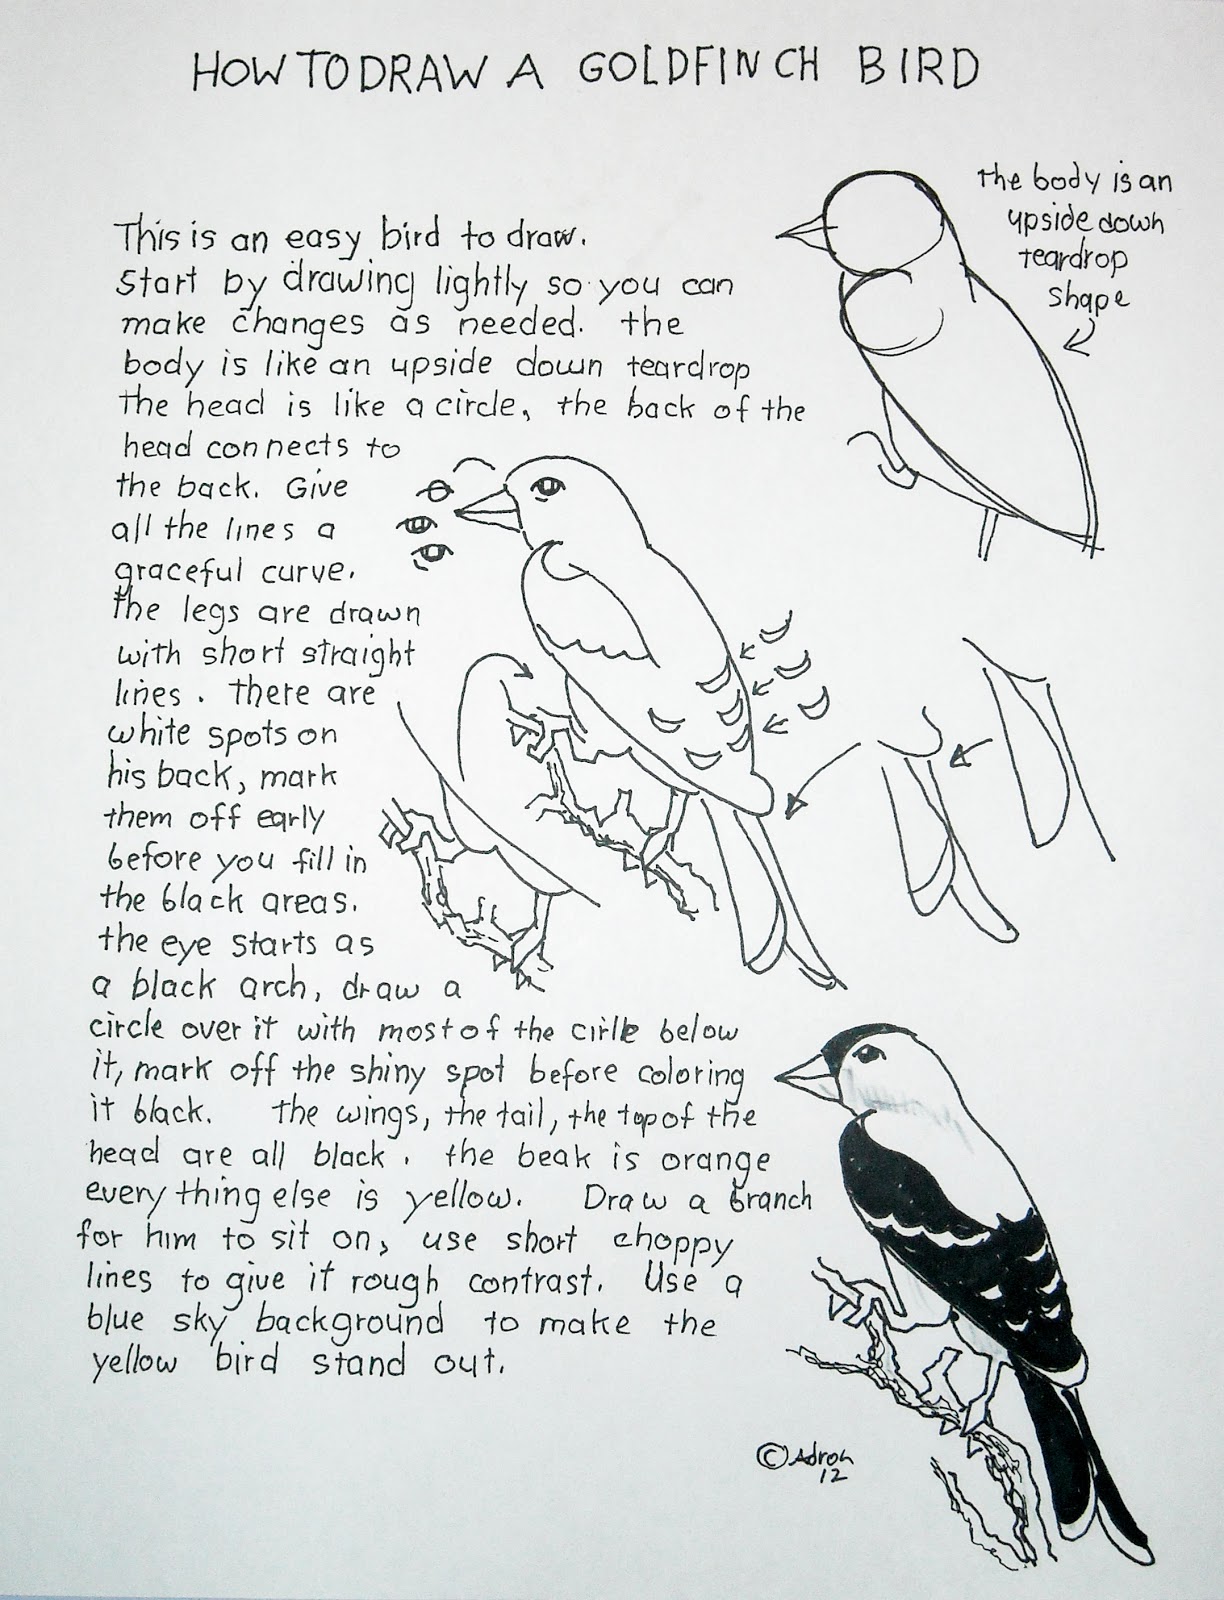 HOW TO DRAW A GOLDFINCH BIRD
the body is an
upside down
teardrop
shape
This is an easy bird to draw.
Start by drawing lightly so you can
make changes as needed. the
body is like an upside down teardrop
the head is like a circle, the back of the
head connects to
the back. Give
all the lines a
graceful curve.
the legs are drawn
with short straight
lines. there are
white spots on
his back, mark
them off early
before you fill in
the black areas.
the eye starts as
a black arch, draw a
circle over it with most of the cirlle below
it, mark off the shiny spot before coloring
it black. the wings, the tail, the top of the
head are all black. the beak is orange
every thing else is yellow. Draw a branch
for him to sit on, use short choppy
lines to give it rough contrast. Use a
blue sky background to make the
yellow bird stand out.
© Adron
12